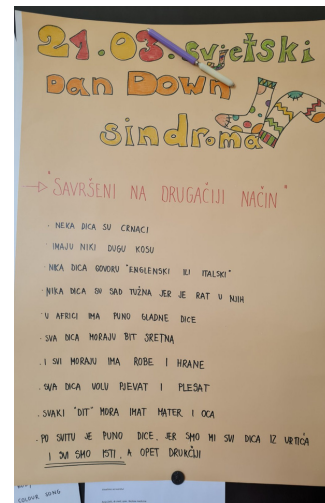 21.03. svjetski
Dan Down
sindroma
"SAVRŠENI NA DRUGAČIJI NAČIN"
· NEKA DICA SU CRNACI
· IMAJU NIKI DUGU KOSU
· NIKA DICA GOVORU "ENGLENSKI ILI ITALSKI"
· NIKA DICA SU SAD TUŽNA JER JE RAT U NJIH
· U AFRICI IMA PUNO GLADNE DICE
· SVA DICA MORAJU BIT SRETNA
· I SVI MORAJU IMA ROBE I HRANE
· SVA DICA VOLU PJEVAT I PLESAT
· SVAKI "DIT" MORA IMAT MATER I OCA
· PO SVITU JE PUNO DICE, JER SMO MI SVI DICA IZ VRTIĆA
I SVI SMO ISTI, A OPET DRUKČIJI
COLOUR SONG